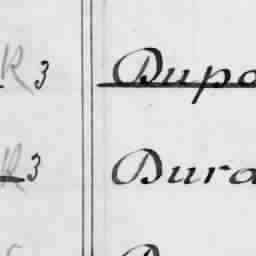 R 3 Dupo
R 3 Dura